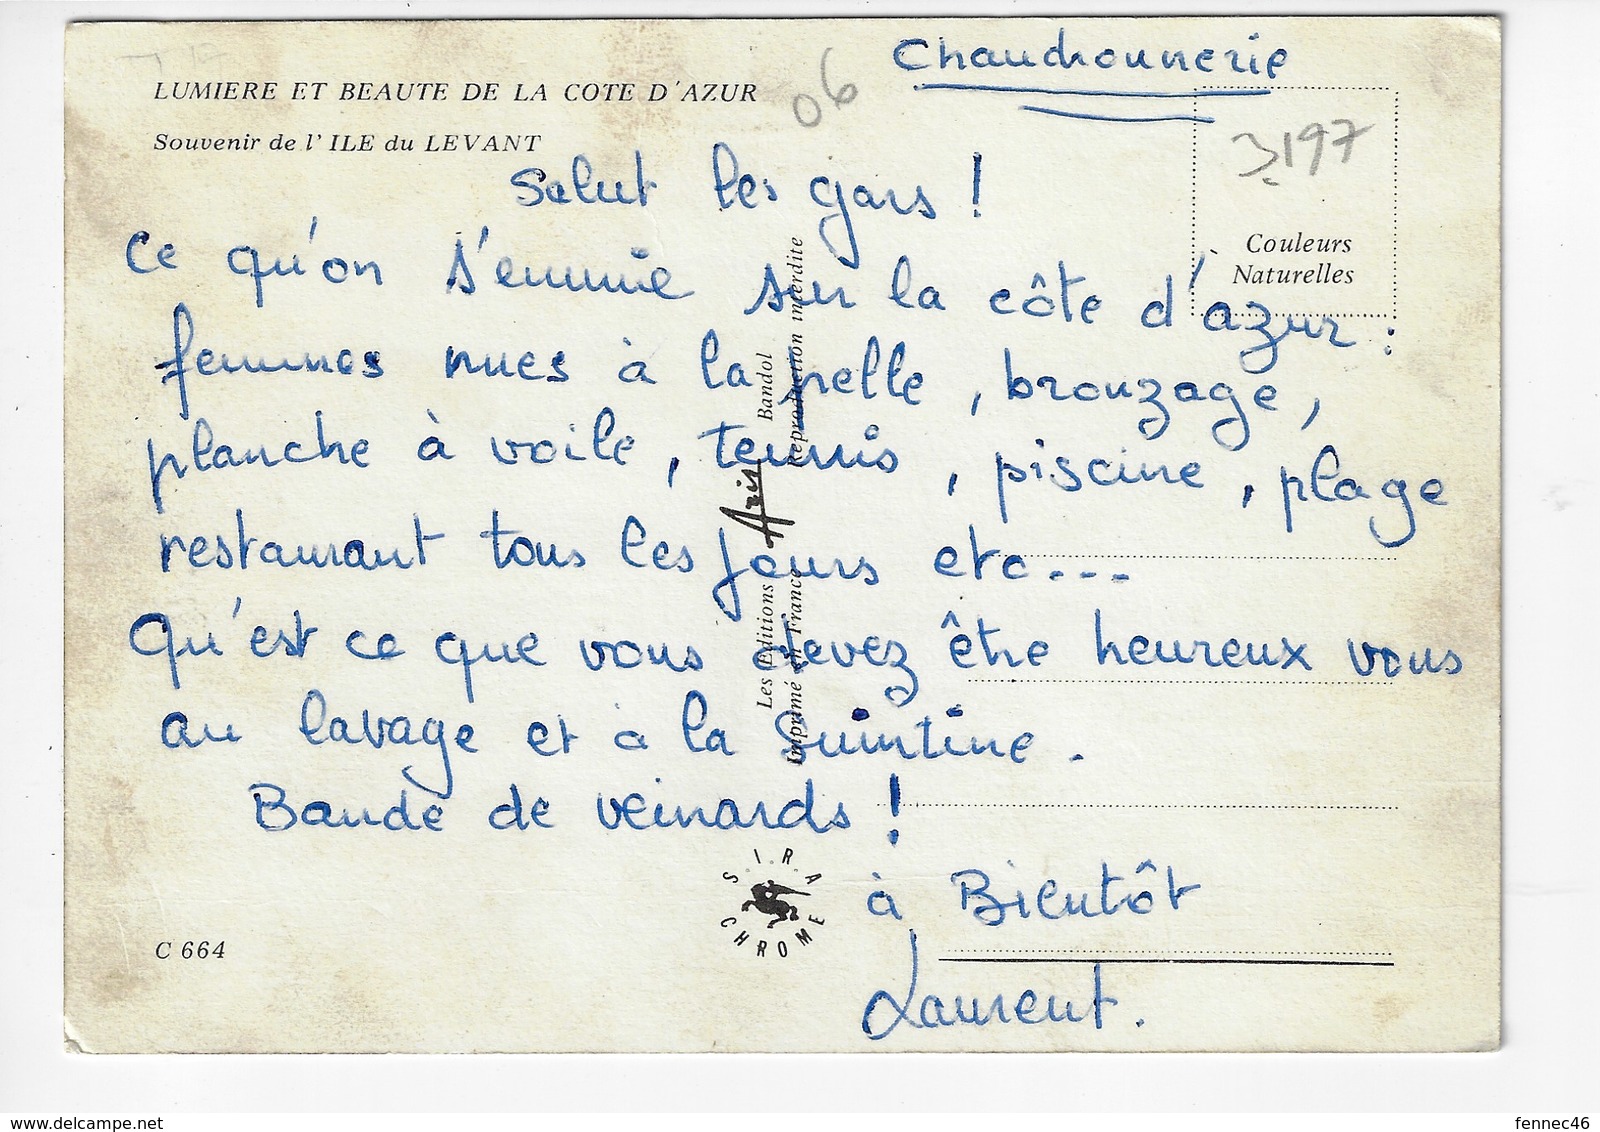 Chaudronnerie
LUMIERE ET BEAUTE DE LA COTE D'AZUR
06
Souvenir de l' ILE du LEVANT
3197
Couleurs
Naturelles
Salut les gars !
Ce qu'on s'ennuie sur la côte d'azur :
femmes nues à la pelle, bronzage,
planche à voile, tennis, piscine, plage
restaurant tous les jours etc...
Qu'est ce que vous devez être heureux vous
au lavage et à la Suintine.
Bande de veinards !
à Bientôt
Laurent.
Les Editions Aris Bandol
Imprimé en France Reproduction interdite
SIRA
CHROME
C 664
delcampe.net
fennec46